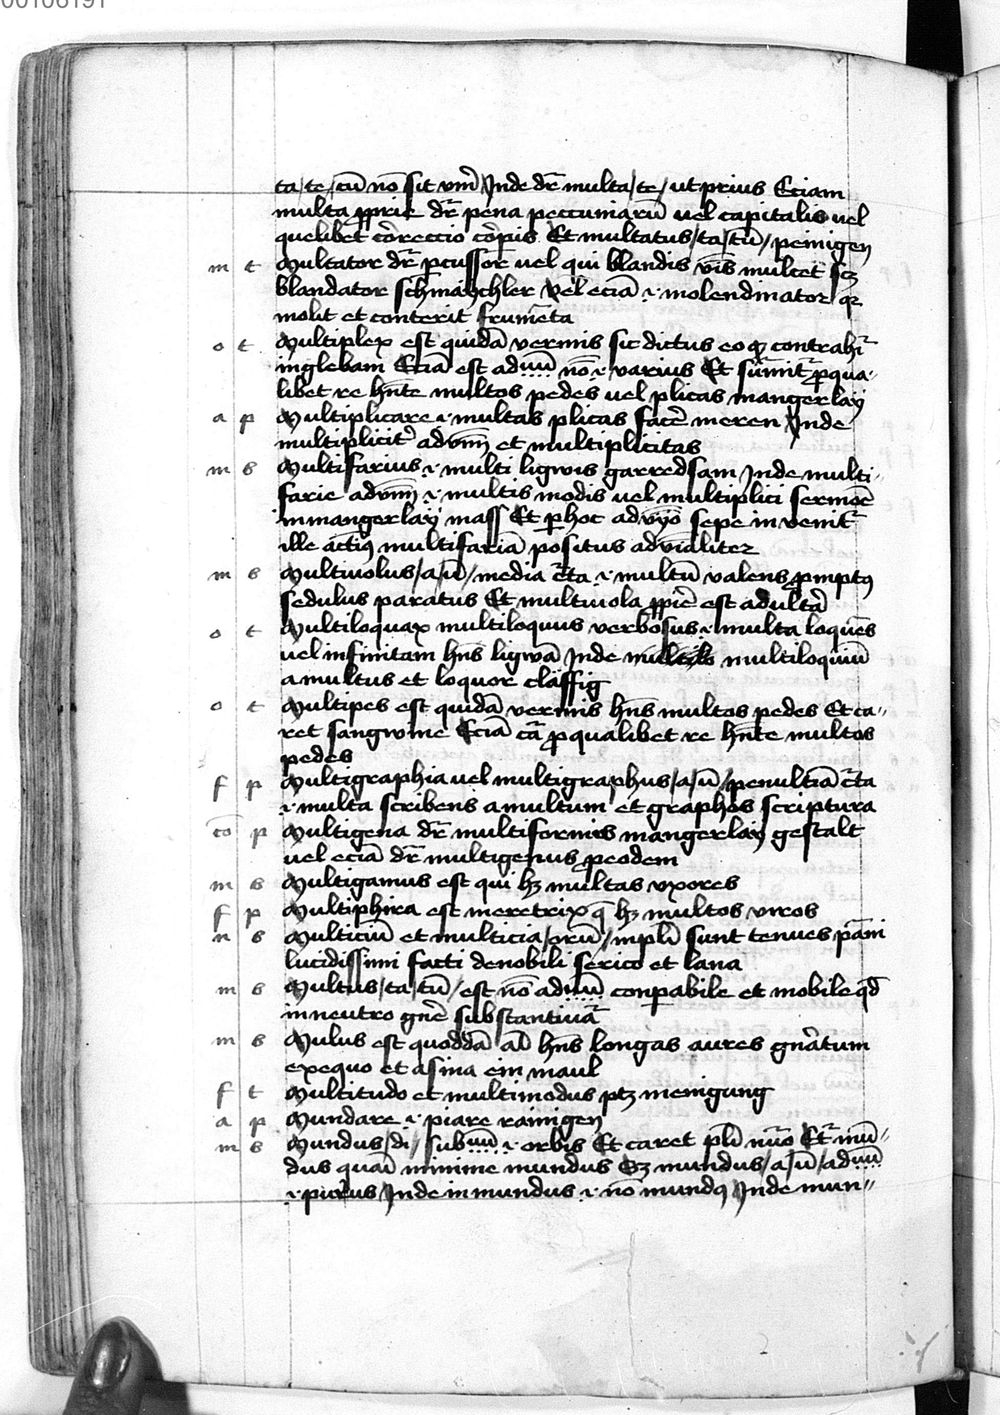 00106191
ta / te / cū nō sit vnū Inde dr̄ multa / te / ut prius Eciam
multa ꝓprie dr̄ pena peccuniarū vel capitalis vel
quelibet cōreccio cōrpis Et multatus / ta / tū / peinigen
m t Multator dr̄ ꝑcussor vel qui blandis v̄bis mulcet scꝫ
blandator schmaychler vel eciā ·i· molendinator qꝛ
molit et conterit frumēta
o t Multiplex est quidā vermis sic dictus eo qꝫ contrahit̄
in glebam Eciā est adiuū nō ·i· varius Et sūmit̄ ꝓ qua-
libet re hn̄te multos pedes vel plicas mangerlay
a p Multiplicare ·i· multas plicas facē meren Inde
multiplicit̄ adv̄m et multiplicitas
m s Multifarius ·i· multi ligwis garredsam Inde multi-
farie adv̄m ·i· multis modis vel multiplici sermōe
in mangerlay mass Et ꝑ hoc adv̄ꝫō sepe in venit̄
ille actꝰ multifariā positus adv̄ialiter
m s Multiuolus / a / ū / media c̄ta ·i· multū valens ꝓmptꝰ
sedulus paratus Et multiuola ꝓpiē est adultā
o t Multiloquax multiloquus verbosus ·i· multa loquēs
vel infinitam hn̄s ligwā Inde multiloquiū
a multus et loquor claffig
o t Multipes est quidā vermis hn̄s multos pedes Et ca-
ret sangwine Eciā c̄a ꝓ qualibet re hn̄te multos
pedes
f p Multigraphia vel multigraphus / a / ū / penultīā c̄ta
·i· multa scribens a multum et graphos scriptura
cō p Multigena dr̄ multiformis mangerlay gestalt
vel eciā dr̄ multigenus ꝓ eodem
m s Multigamus est qui hꝫ multas vxores
f p Multiphira est meretrix q̄ hꝫ multos viros
n s Multiciū et multicia / orū / in pl̄i sunt tenues pāni
lucidissimi facti de nobili serico et lana
m s Multus / ta / tū / est nō adiuū conꝑabile et mobile qd̄
in neutro gn̄e substantiuā
m s Mulus est quoddā al̄ hn̄s longas aures gn̄atum
ex equo et asina ein maul
f t Multitudo et multimodus ptꝫ menigung
a p Mundare ·i· piare rainigen
m s Mundus / di / subuū ·i· orbis Et caret pl̄i nūo Et̄ mū-
dus quaī minime mundus Sꝫ mundus / a / ū / adiuū
·i· purus Inde inmundus ·i· nō mundꝰ Inde mun-